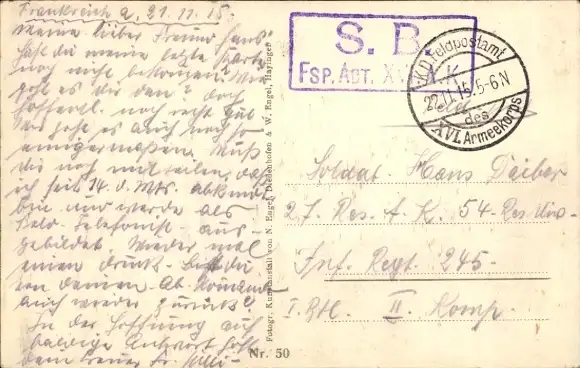 Frankreich d. 21.11.15.
Meine lieber Freund Hans!
Hast du meine letzte Karte
noch nicht bekommen? Wie
geht es dir denn? doch
hoffentl. noch recht gut
Mir geht es auch noch so
einigermaßen. Muß
dir noch mitteilen, daß
ich seit 14. d. Mts.
bin und werde als
Feld-Telefonist aus-
gebildet. Wieder mal
einen Druck. Bist du
von deinem Ab. Komando
auch wieder zurück?
In der Hoffnung auf
baldige Antwort
dein treuer Fr. Willi
S. B.
FSP. ABT. A.K.
K.D. Feldpostamt
22.11.15. 5-6 N
des
XVI. Armeekorps
Soldat Hans Daiber
27. Res. A. K. 54. Res. Div.
Inf. Regt. 245.
I. Btl. II. Komp.
Fotogr. Kunstanstalt von N. Engel, Diedenhofen & W. Engel, Hayingen
Nr. 50